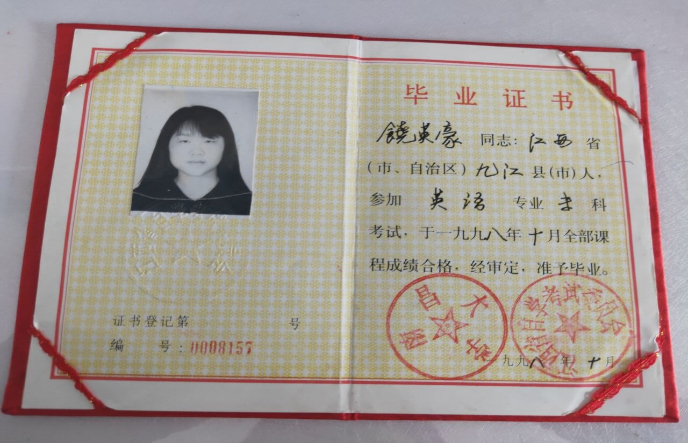 证书登记第 号
编 号:0008157
毕业证书
饶英豪 同志:江西省
(市、自治区)九江县(市)人,
参加 英语 专业 专科
考试,于一九九八年十月全部课
程成绩合格,经审定,准予毕业。
南昌大学
一九九八年十月